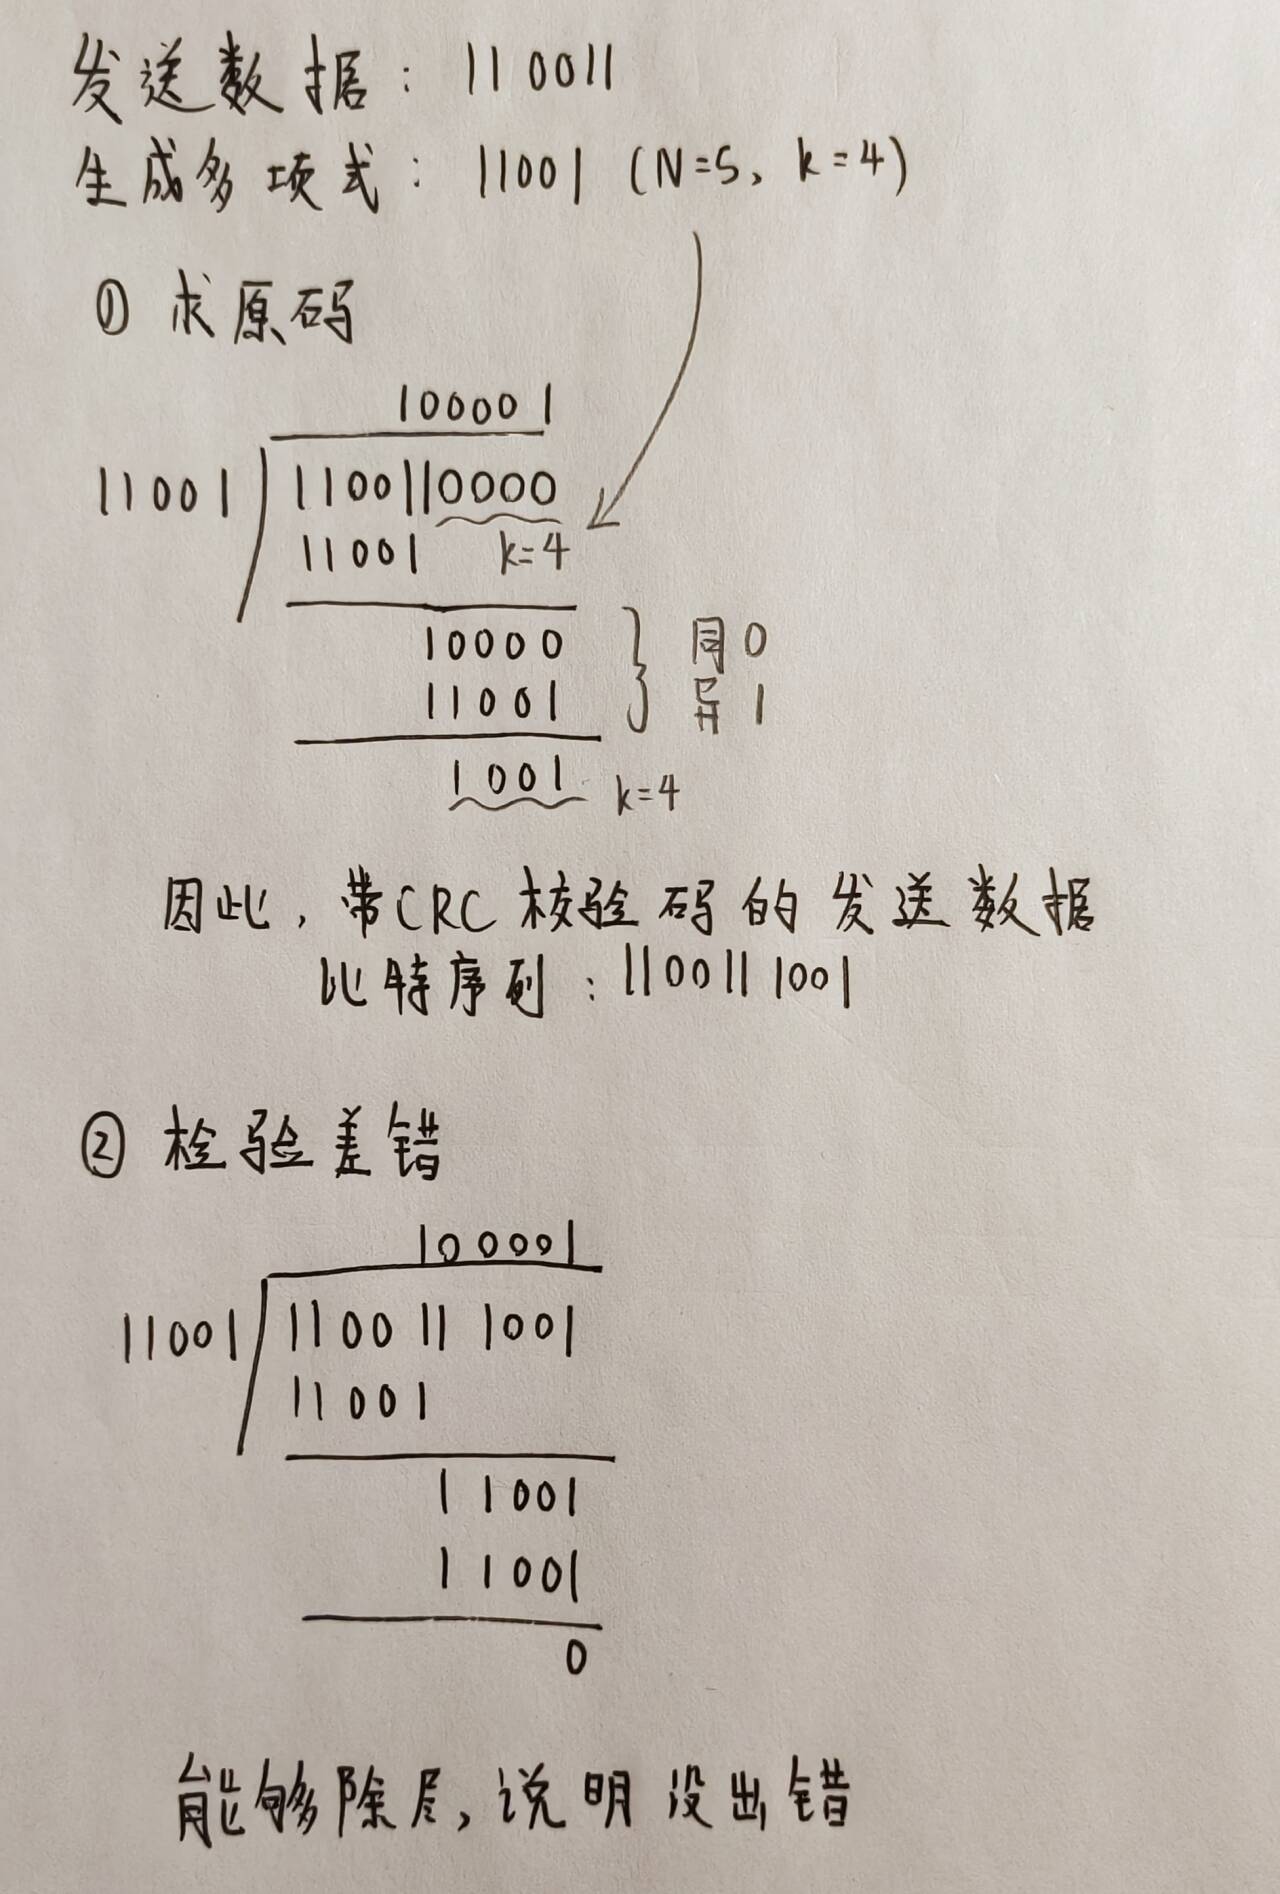 发送数据：110011
生成多项式：11001（N=5、k=4）
① 求原码
100001
11001
1100110000
11001 k=4
10000 同0
11001 异1
1001 k=4
因此，带CRC校验码的发送数据
比特序列：110011 1001
② 检验差错
100001
11001
110011 1001
11001
11001
11001
0
能够除尽，说明没出错